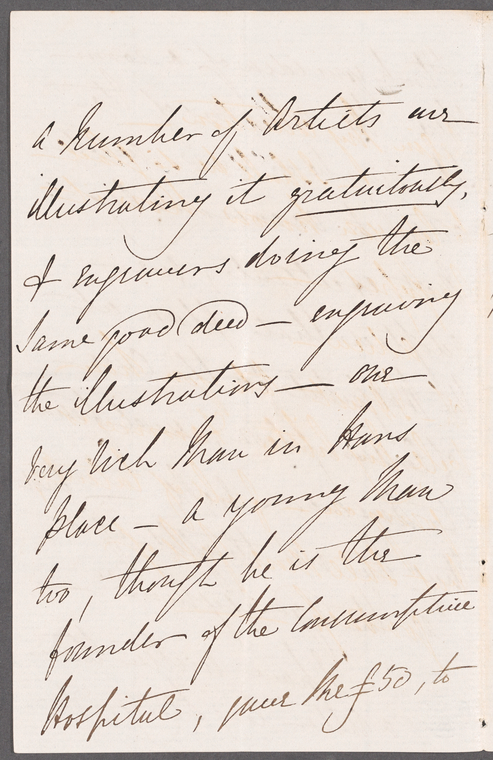 a number of Artists are
illustrating it gratuitously,
& engravers doing the
same good deed — engraving
the illustrations — one
very rich man in Hans
place — a young man
too, though he is the
founder of the Consumptive
Hospital, gave me £50, to